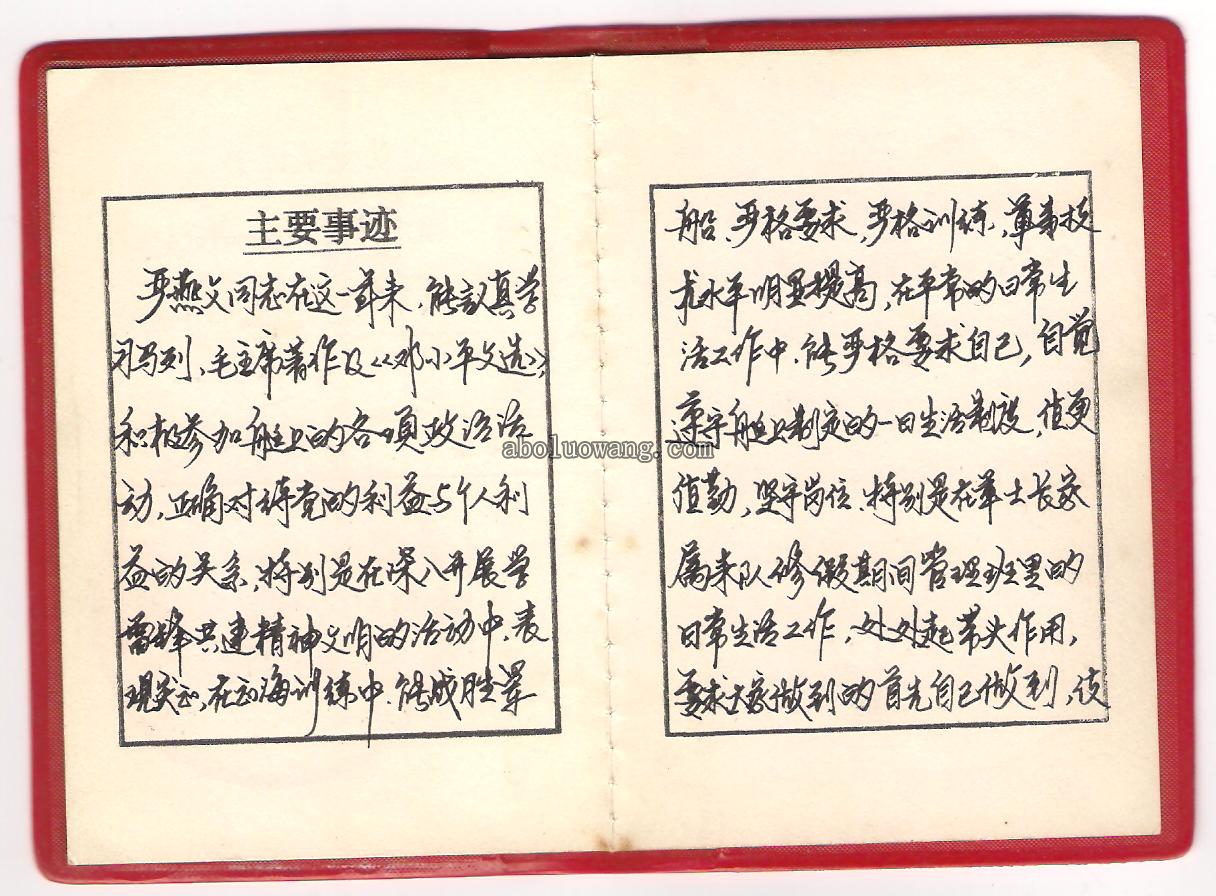 主要事迹
严燕文同志在这一年来，能认真学
习马列、毛主席著作及《邓小平文选》，
积极参加艇上的各项政治活
动，正确对待党的利益与个人利
益的关系，特别是在深入开展学
雷锋共建精神文明的活动中，表
现突出，在出海训练中，能成胜晕
船，严格要求，严格训练，军事技
术水平明显提高，在平常的日常生
活工作中，能严格要求自己，自觉
遵守艇上制定的一日生活制度，值更
值勤，坚守岗位，特别是在军士长家
属来队修假期间管理班里的
日常生活工作，处处起带头作用，
要求大家做到的首先自己做到，使
aboluowang.com